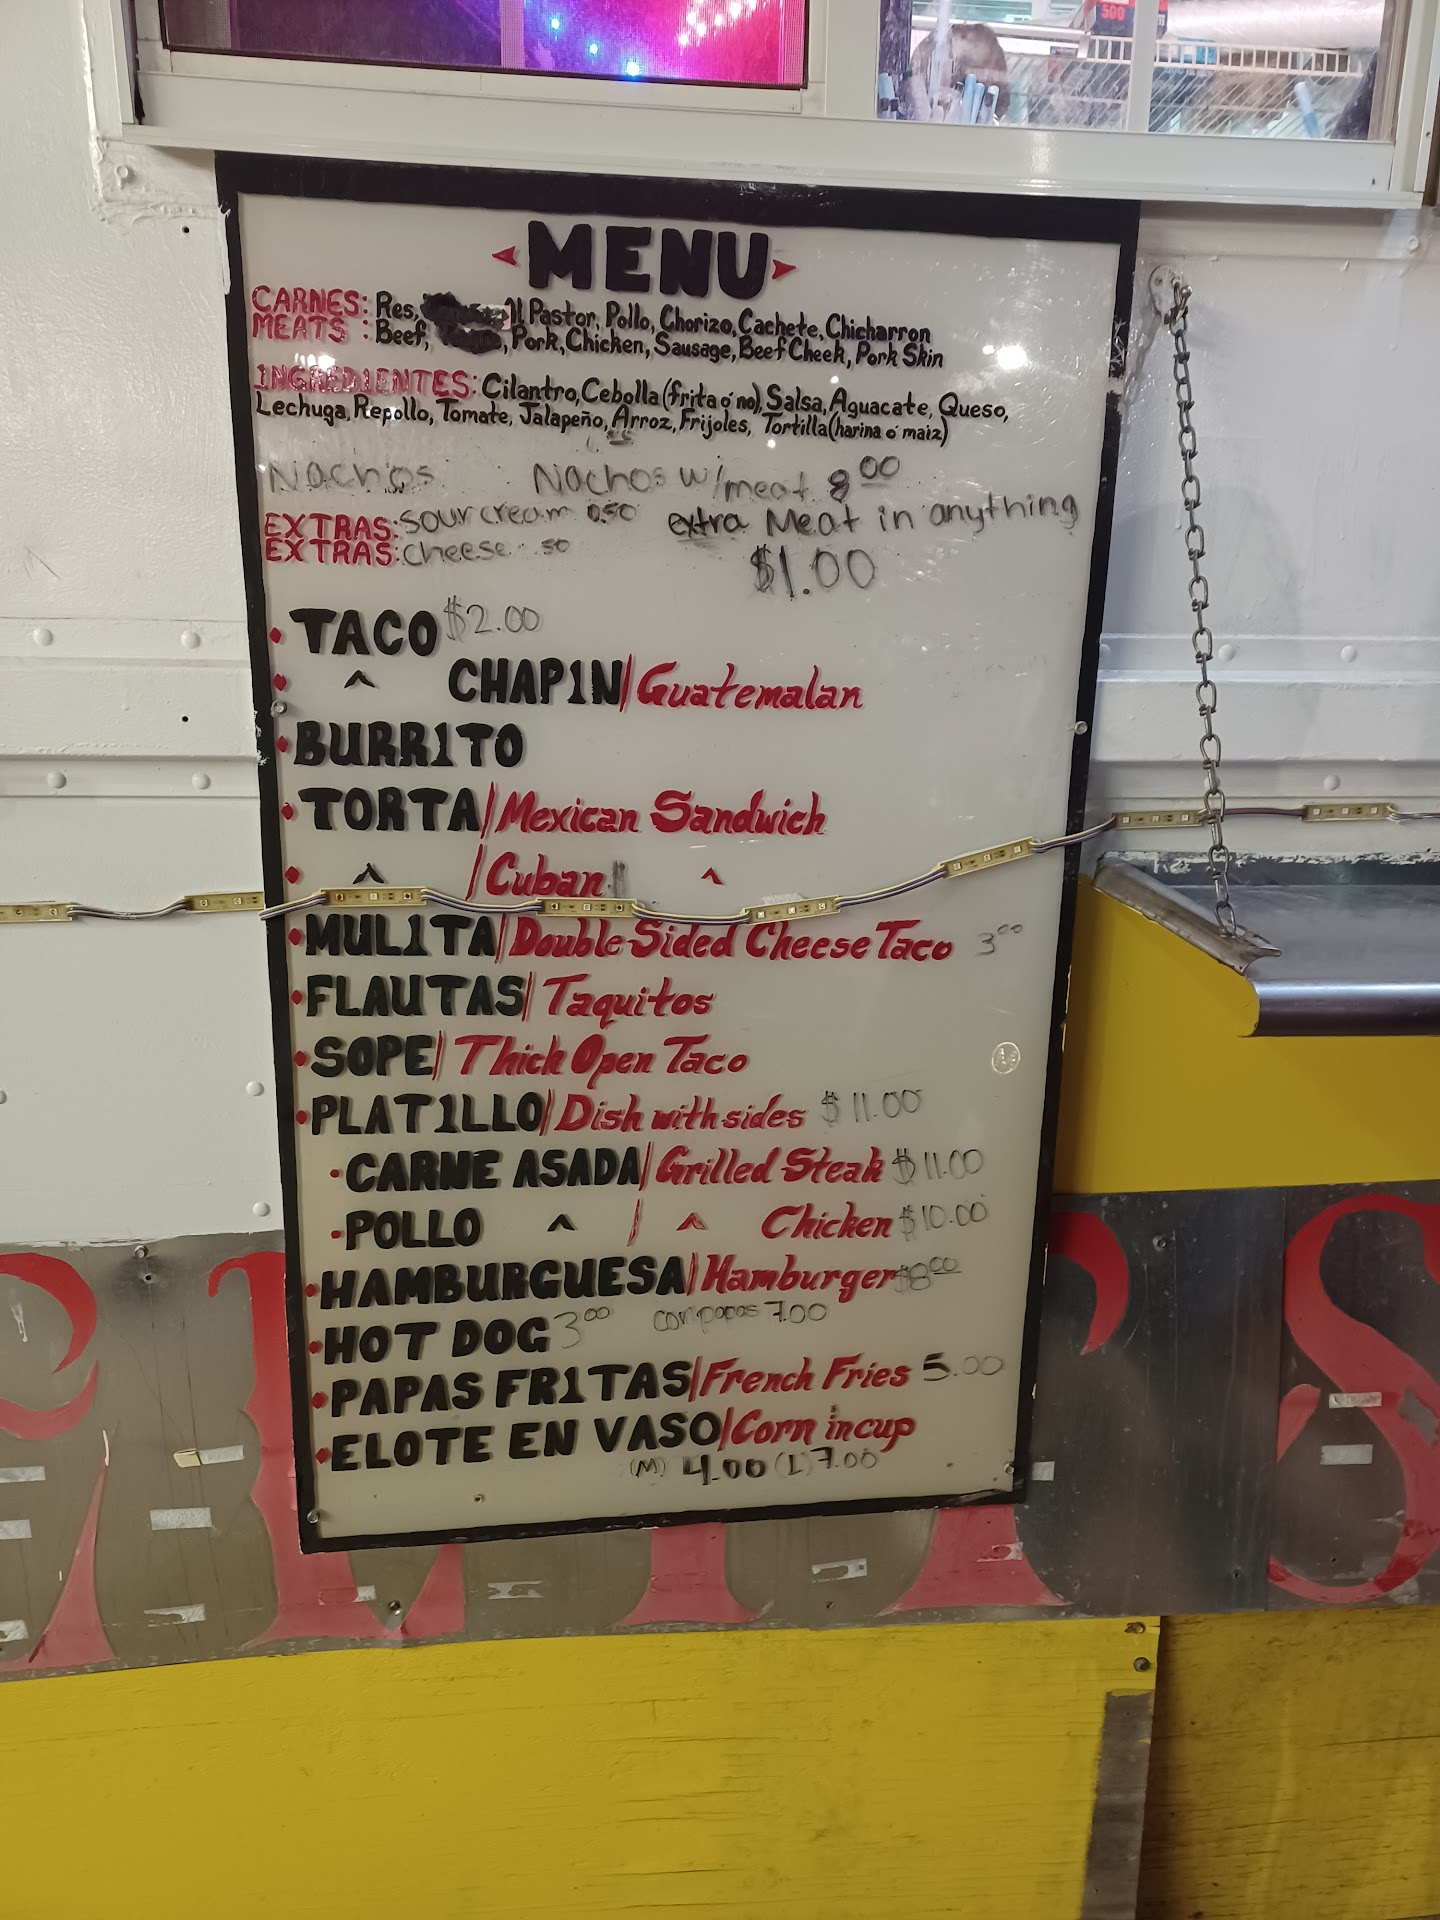 MENU
CARNES: Res, Al Pastor, Pollo, Chorizo, Cachete, Chicharron
MEATS: Beef, Pork, Chicken, Sausage, Beef Cheek, Pork Skin
INGREDIENTES: Cilantro, Cebolla (frita ó no), Salsa, Aguacate, Queso,
Lechuga, Repollo, Tomate, Jalapeño, Arroz, Frijoles, Tortilla (harina ó maiz)
Nachos Nachos w/meat 8.00
EXTRAS: sour cream 0.50 extra Meat in anything
EXTRAS: cheese .50 $1.00
TACO $2.00
^ CHAPIN/Guatemalan
BURRITO
TORTA/Mexican Sandwich
^ /Cuban ^
MULITA/Double Sided Cheese Taco 3.00
FLAUTAS/Taquitos
SOPE/Thick Open Taco
PLATILLO/Dish with sides $11.00
CARNE ASADA/Grilled Steak $11.00
POLLO ^ / ^ Chicken $10.00
HAMBURGUESA/Hamburger $8.00
HOT DOG 3.00 con papas 7.00
PAPAS FRITAS/French Fries 5.00
ELOTE EN VASO/Corn in cup
(M) 4.00 (L) 7.00
500